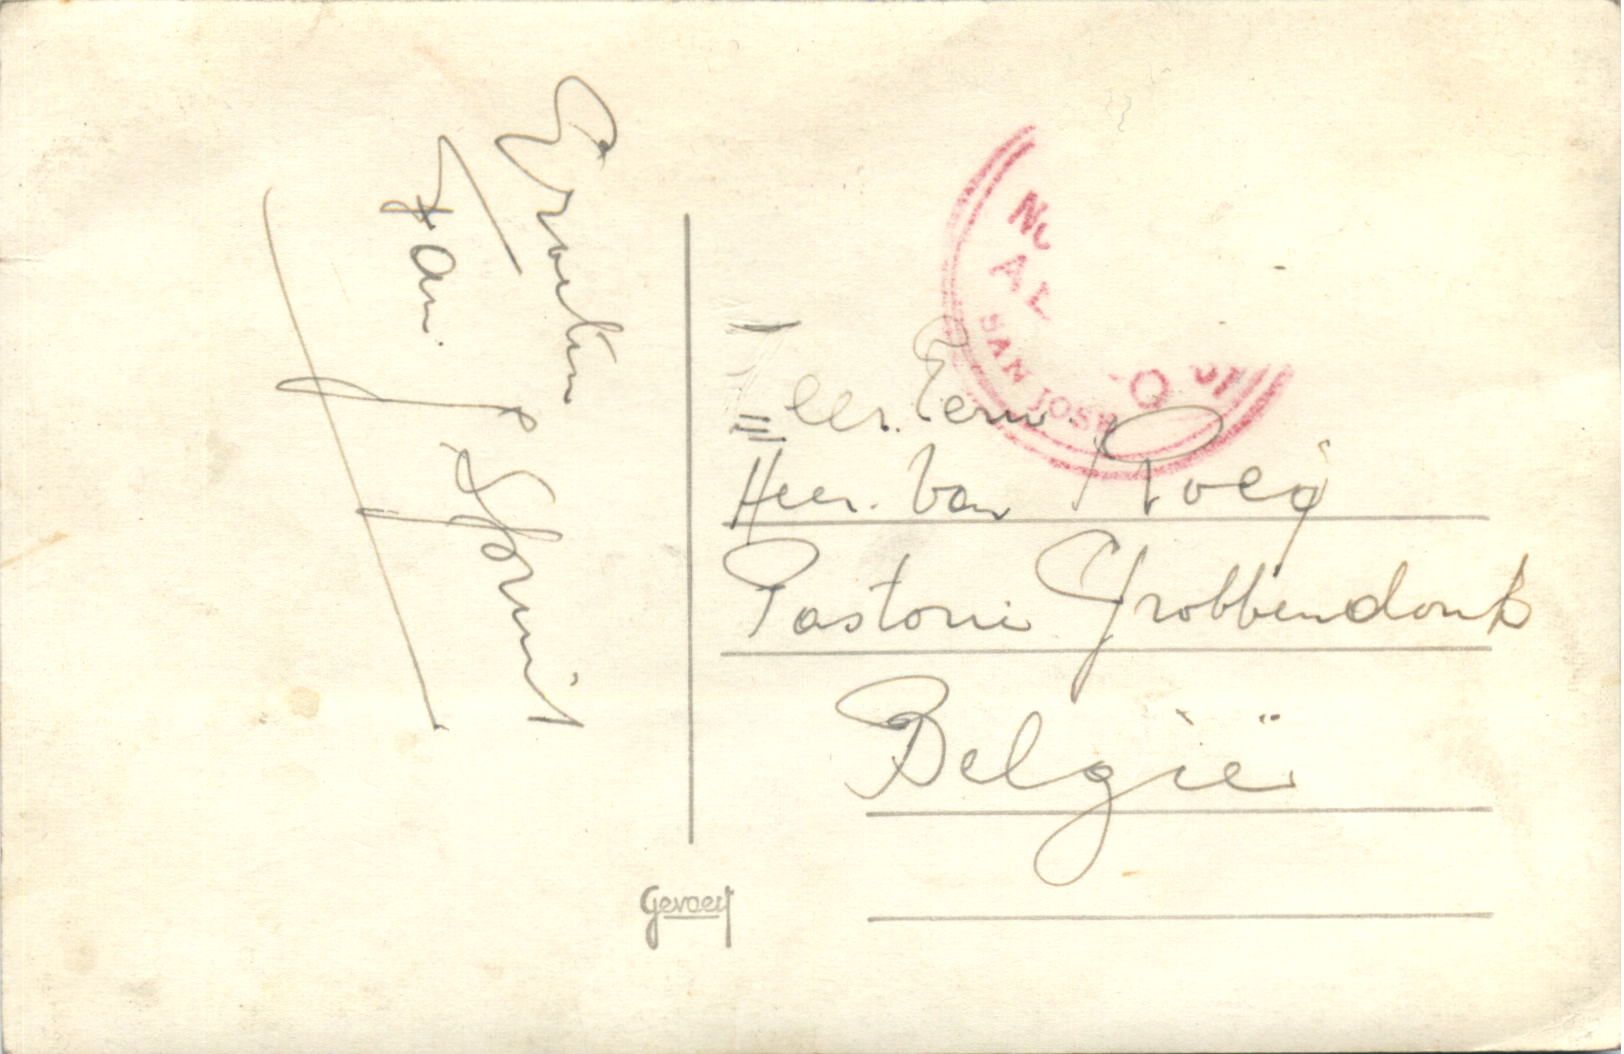 Groeten
van
Zeer. Eerw.
Heer. Van Roey
Pastorie Grobbendonk
België
SAN JOSE
Gevaert